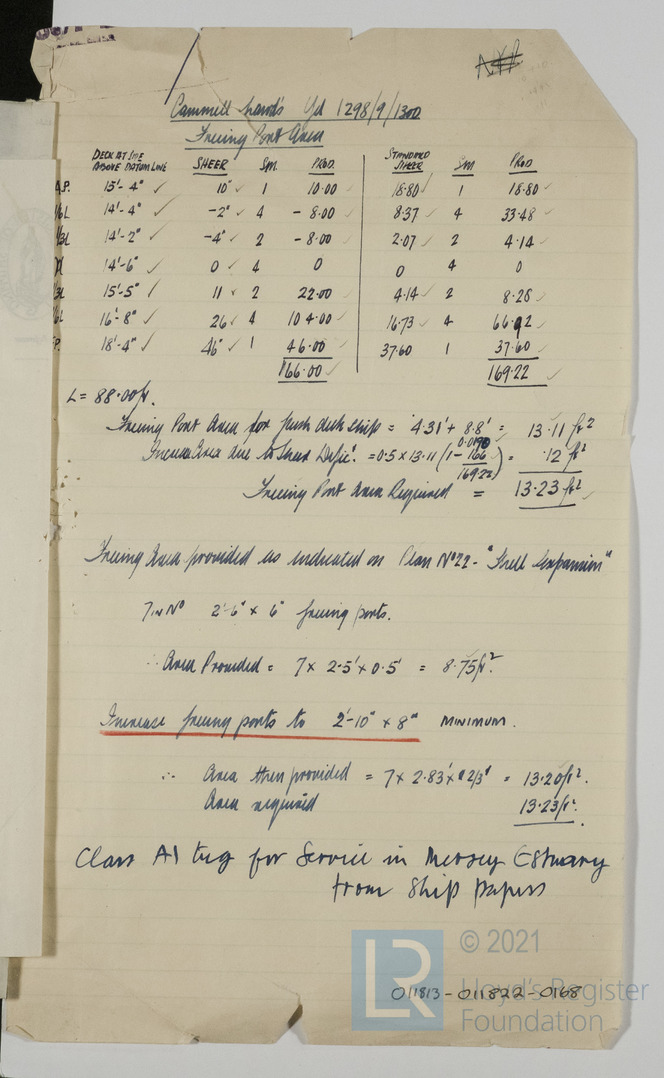 Cammell Laird's Yd 1298/9/1300
Freeing Port Area
DECK AT SIDE ABOVE DATUM LINE SHEER SM. PROD. STANDARD SHEER SM PROD
A.P. 15'-4" ✓ 10" ✓ 1 10.00 ✓ 18.80 ✓ 1 18.80 ✓
1/6L 14'-4" ✓ -2" ✓ 4 - 8.00 ✓ 8.37 ✓ 4 33.48 ✓
1/3L 14'-2" ✓ -4" ✓ 2 - 8.00 ✓ 2.07 ✓ 2 4.14 ✓
14'-6" ✓ 0 ✓ 4 0 0 4 0
1/3L 15'-5" ✓ 11 ✓ 2 22.00 ✓ 4.14 ✓ 2 8.28 ✓
1/6L 16'-8" ✓ 26 ✓ 4 104.00 ✓ 16.73 ✓ 4 66.92 ✓
F.P. 18'-4" ✓ 46" ✓ 1 46.00 ✓ 37.60 1 37.60 ✓
166.00 ✓ 169.22 ✓
L = 88.00 ft.
Freeing Port Area for flush deck ship = 4.31' + 8.8' = 13.11 ft²
Increase Area due to Sheer Defic! = 0.5 x 13.11 (1 - 166/169.22) 0.0190 = .12 ft²
Freeing Port Area Required = 13.23 ft² ✓
Freeing Area provided as indicated on Plan Nº 22 - "Shell Expansion"
7 in Nº 2'-6" x 6" freeing ports.
∴ Area Provided = 7 x 2.5' x 0.5' = 8.75 ft².
Increase freeing ports to 2'-10" x 8" MINIMUM.
∴ Area then provided = 7 x 2.83' x 2/3' = 13.20 ft².
Area required 13.23 ft².
Class A1 tug for Service in Mersey Estuary
from ship papers
LR © 2021
Lloyd's Register
Foundation
011813-011822-0168